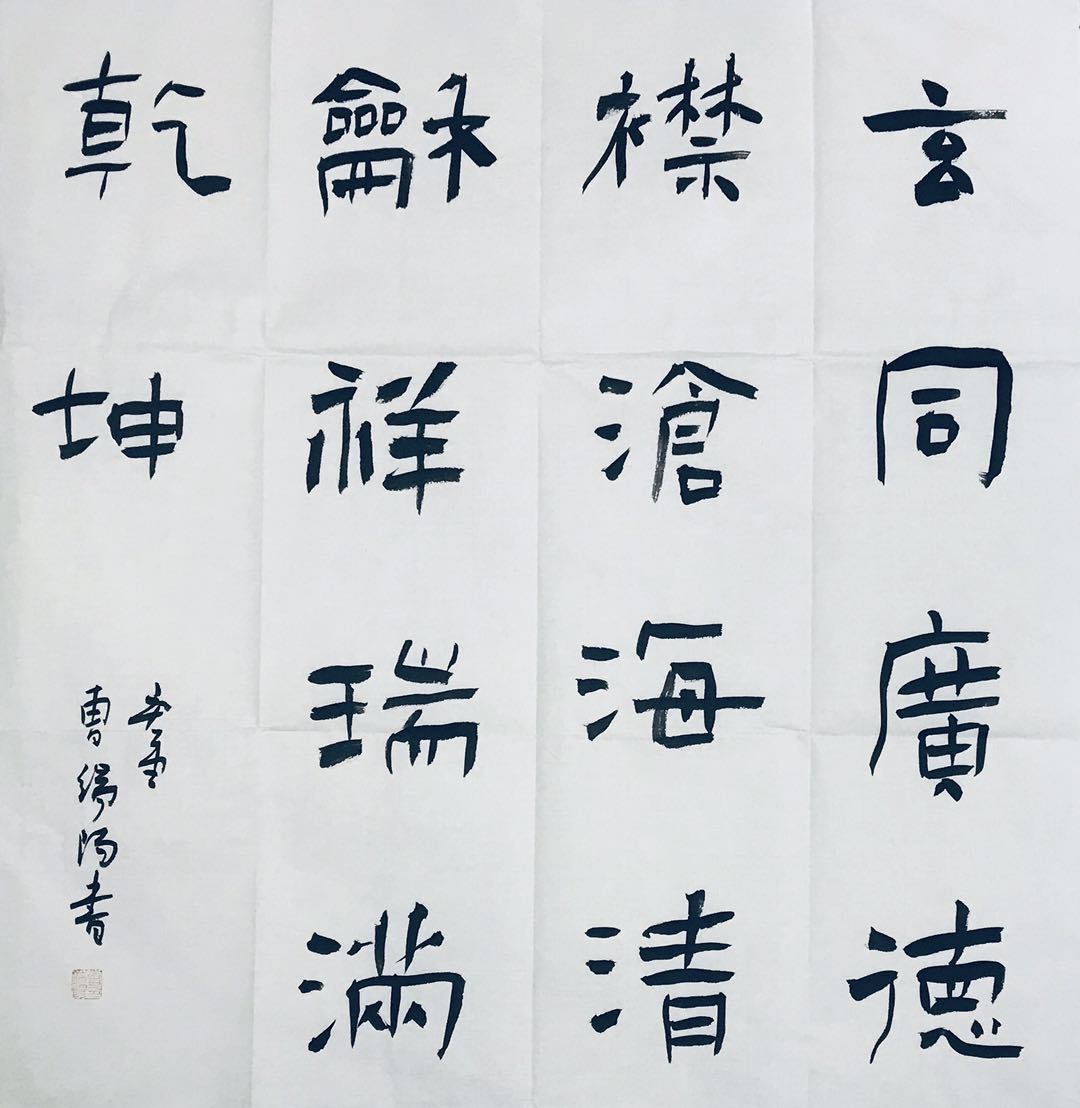 玄同廣德
襟滄海清
龢祥瑞滿
乾坤
曹陽書